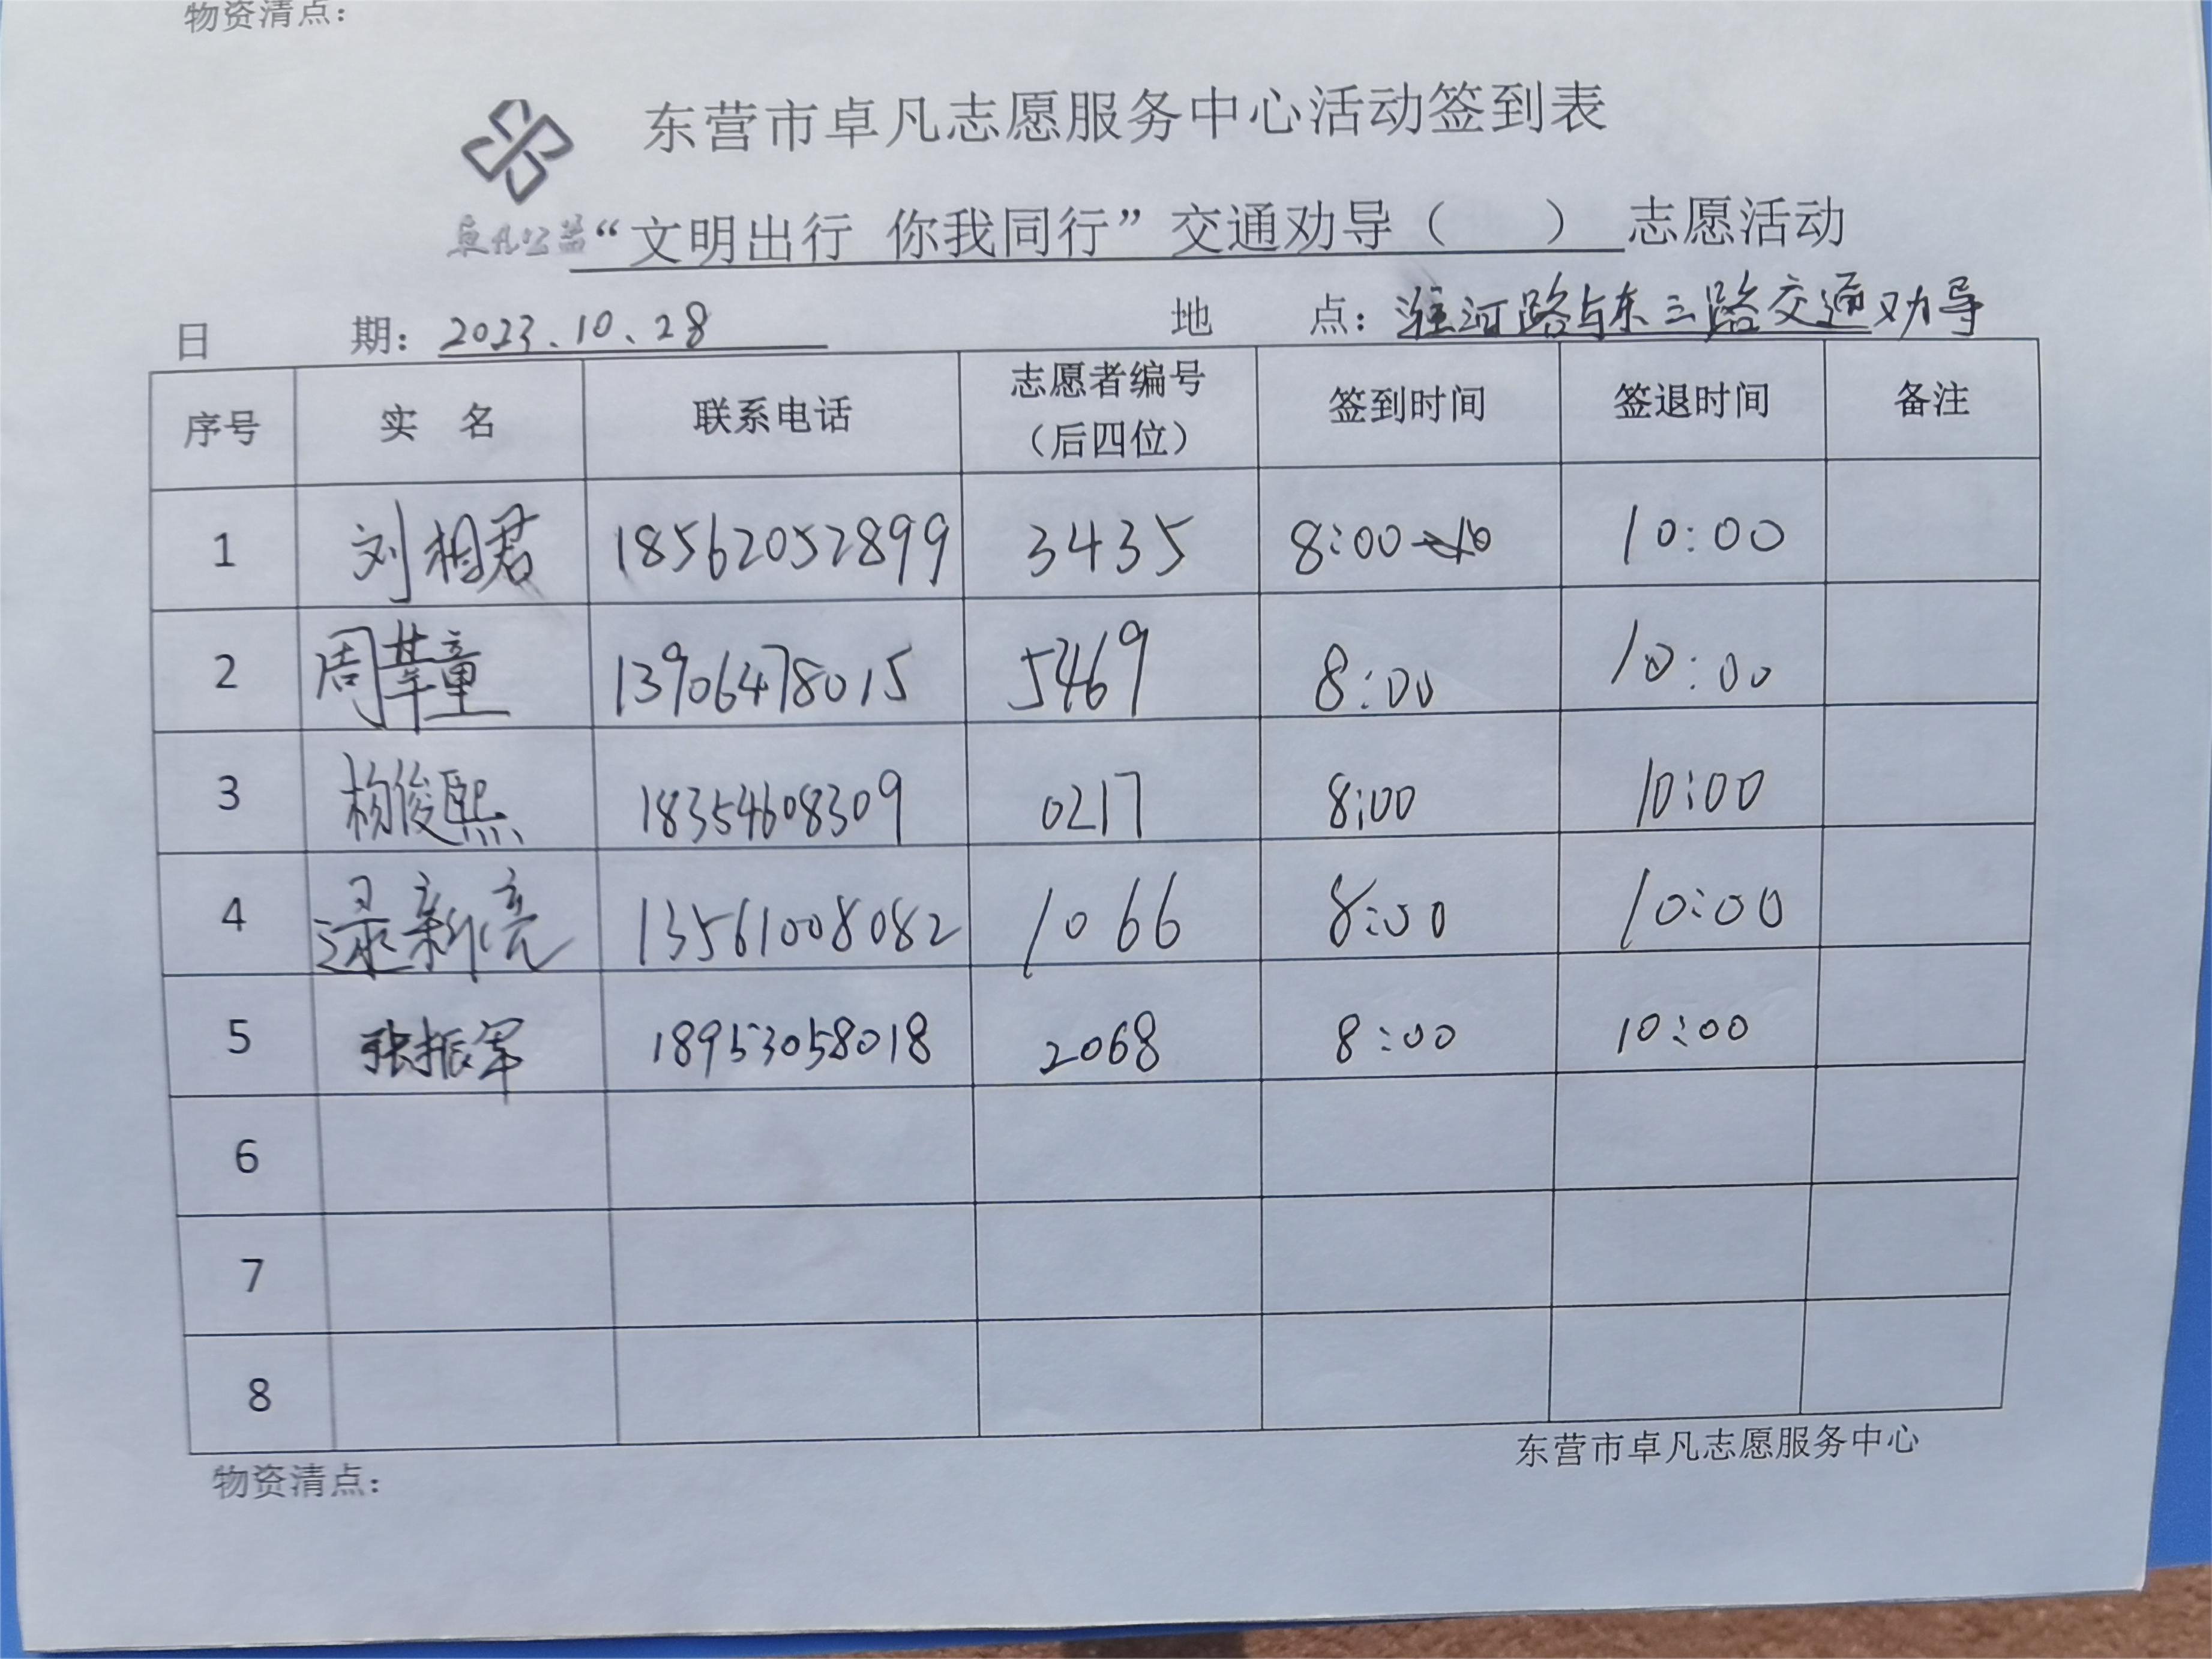 物资清点：
东营市卓凡志愿服务中心活动签到表
卓凡公益
“文明出行 你我同行”交通劝导（ ）志愿活动
日 期：2023.10.28 地 点：淮河路与东三路交通劝导
序号 实 名 联系电话 志愿者编号（后四位） 签到时间 签退时间 备注
1 刘相君 18562052899 3435 8:00 10:00
2 周莘童 13906478015 5469 8:00 10:00
3 杨俊熙 18354608309 0217 8:00 10:00
4 逯新亮 13561008082 1066 8:00 10:00
5 张振军 18953058018 2068 8:00 10:00
6
7
8
东营市卓凡志愿服务中心
物资清点：